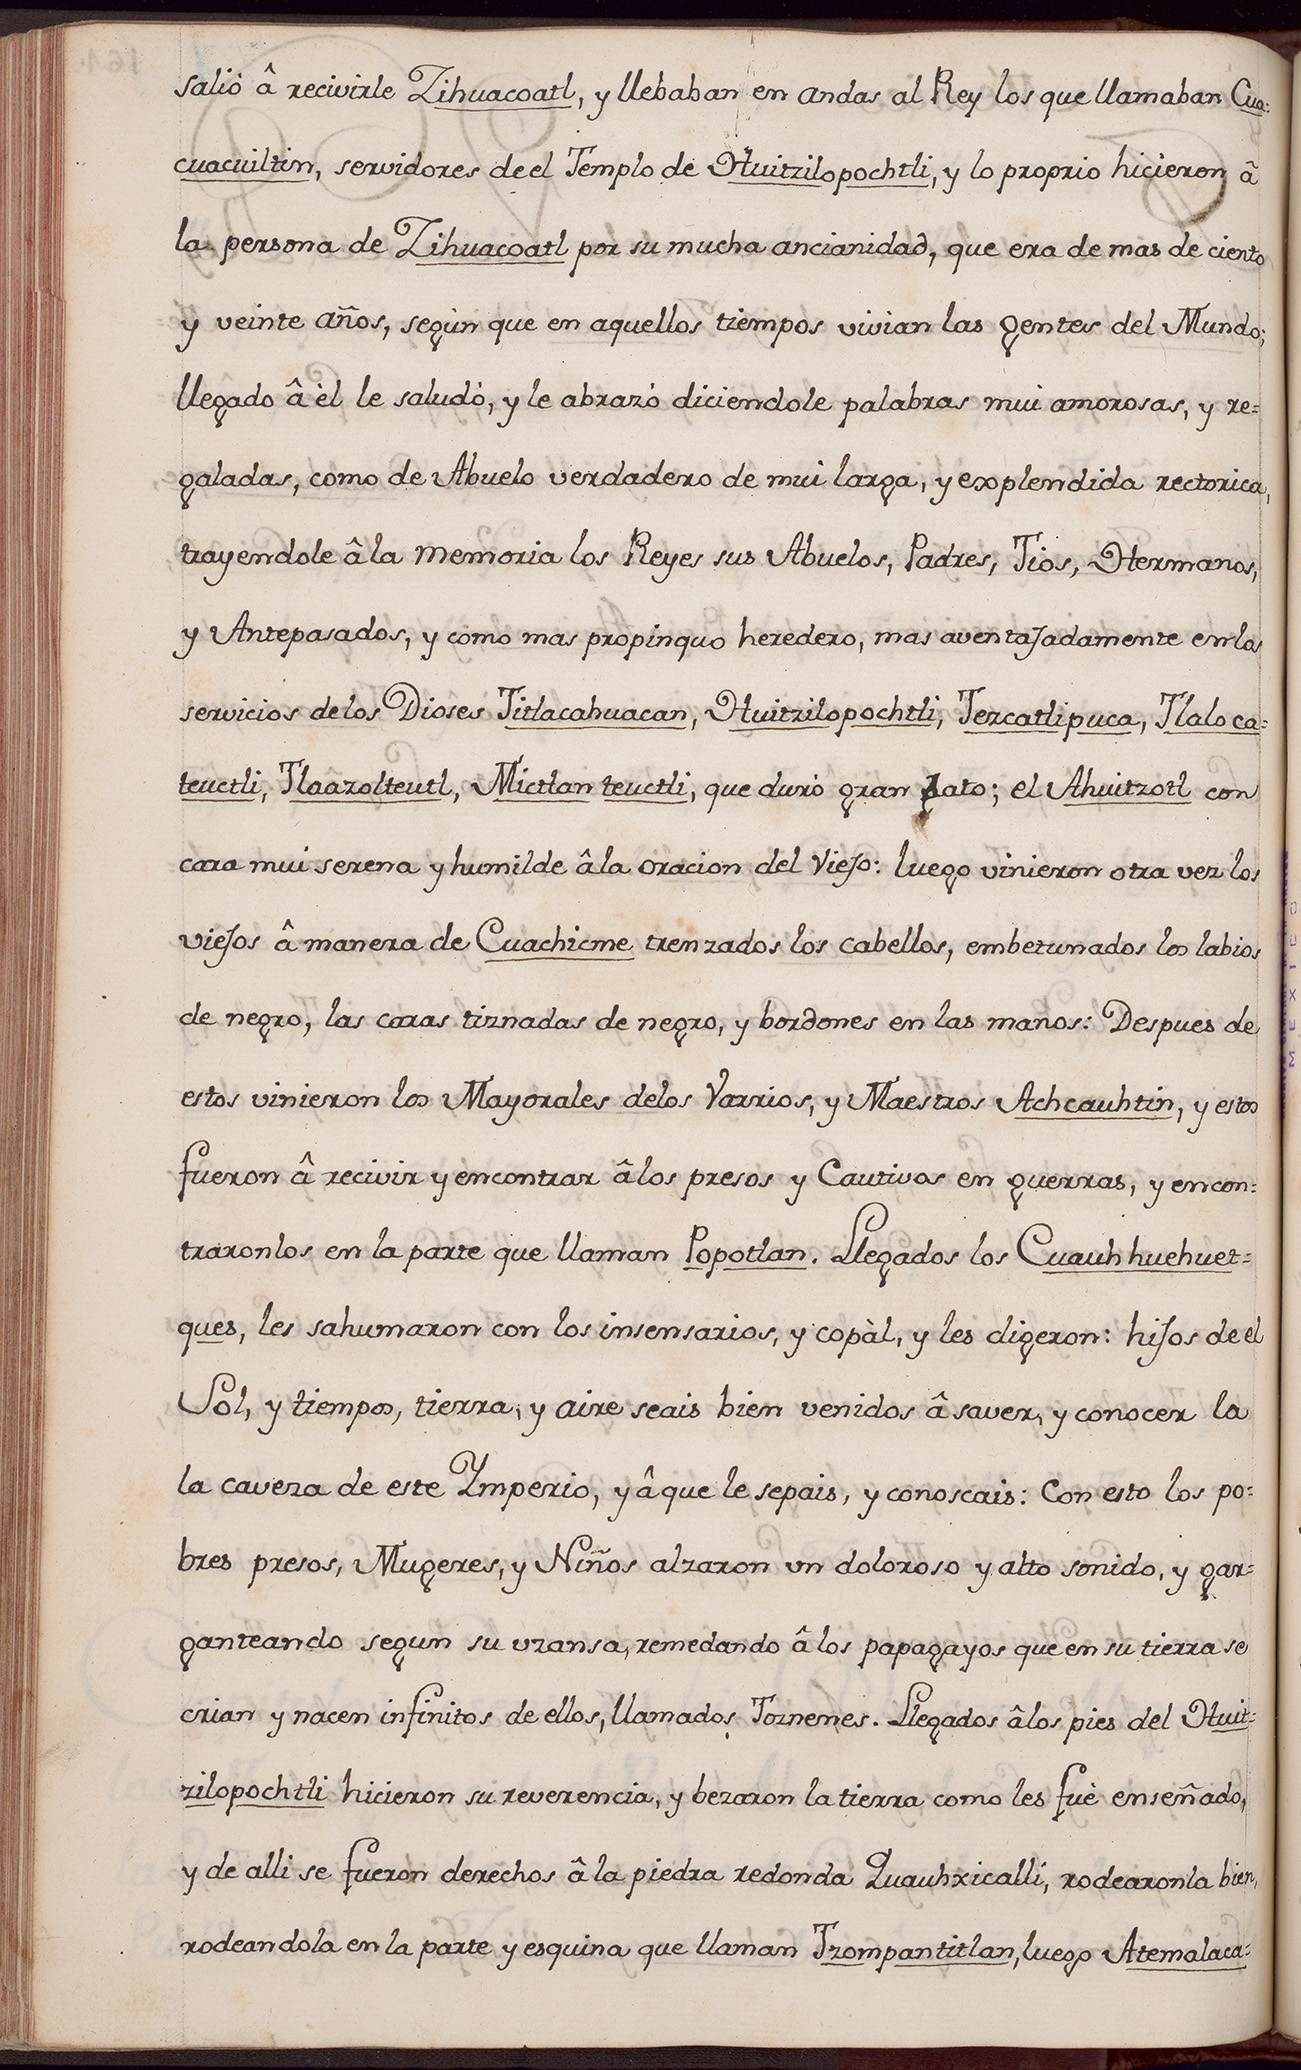 salió â recivirle Zihuacoatl, y llebaban en andas al Rey los que llamaban Cua=
cuacuiltin, servidores de el Templo de Huitzilopochtli, y lo proprio hicieron â
la persona de Zihuacoatl por su mucha ancianidad, que era de mas de ciento
y veinte años, segùn que en aquellos tiempos vivian las gentes del Mundo;
llegado â èl le saludò, y le abrazò diciendole palabras mui amorosas, y re=
galadas, como de Abuelo verdadero de mui larga, y explendida rectorica,
trayendole â la memoria los Reyes sus Abuelos, Padres, Tios, Hermanos,
y Antepasados, y como mas propinquo heredero, mas aventajadamente en los
servicios de los Dioses Titlacahuacan, Huitzilopochtli, Tezcatlipuca, Tlaloca=
teuctli, Tlaazolteutl, Mictlan teuctli, que durò gran rato; el Ahuitzotl con
cara mui serena y humilde â la oracion del viejo: luego vinieron otra vez los
viejos â manera de Cuachicme trenzados los cabellos, embetunados los labios
de negro, las caras tiznadas de negro, y bordones en las manos: Despues de
estos vinieron los Mayorales de los Varrios, y Maestros Achcauhtin, y estos
fueron â recivir y encontrar â los presos y Cautivos en guerras, y encon=
traronlos en la parte que llaman Popotlan. Llegados los Cuauhhuehuet=
ques, les sahumaron con los insensarios, y copàl, y les digeron: hijos de el
Sol, y tiempos, tierra, y aire seais bien venidos â saver, y conocer la
la caveza de este Ymperio, y â que le sepais, y conoscais: Con esto los po=
bres presos, Mugeres, y Niños alzaron un doloroso y alto sonido, y gar=
ganteando segun su uzansa, remedando â los papagayos que en su tierra se
crian y nacen infinitos de ellos, llamados Toznenes. Llegados â los pies del Huit=
zilopochtli hicieron su reverencia, y bezaron la tierra como les fuè enseñado,
y de alli se fueron derechos â la piedra redonda Quauhxicalli, rodearonla bien,
rodeandola en la parte y esquina que llaman Tzompantitlan, luego Atemalaca=
MEXICO